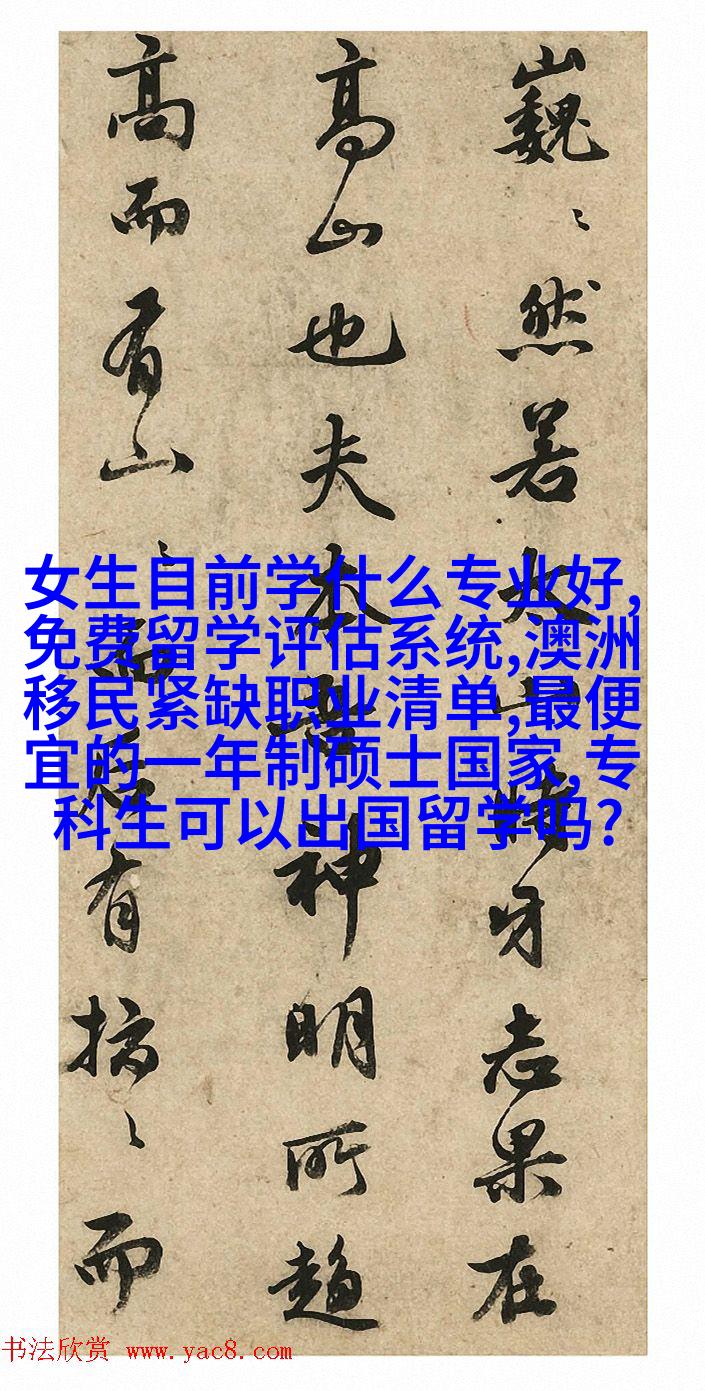 巍〻然若山時牙志果在
高山也夫本神明所趨
高而有山〻有〻而
女生目前学什么专业好,
免费留学评估系统,澳洲
移民紧缺职业清单,最便
宜的一年制硕士国家,专
科生可以出国留学吗?
书法欣赏 www.yac8.com